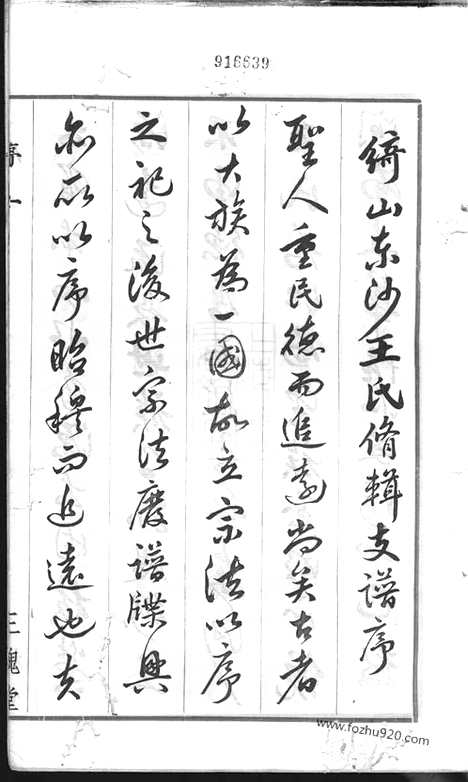 916639
綺山東沙王氏脩輯支譜序
聖人重民德而追遠尚矣古者
以大族為一國故立宗法以序
之祀之後世宗法廢譜牒興
亦所以序昭穆而追遠也夫
序一
三槐堂
www.fozhu920.com